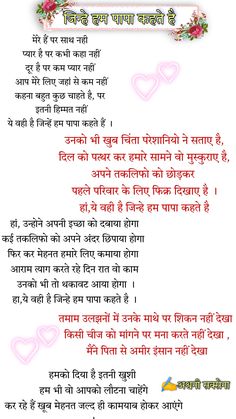 जिन्हे हम पापा कहते है
मेरे हैं पर साथ नही
प्यार है पर कभी कहा नहीं
दूर है पर कम प्यार नहीं
आप मेरे लिए जहां से कम नहीं
कहना बहुत कुछ चाहते है, पर
इतनी हिम्मत नहीं
ये वही है जिन्हें हम पापा कहते हैं ।
उनको भी खुब चिंता परेशानियो ने सताए है,
दिल को पत्थर कर हमारे सामने वो मुस्कुराए है,
अपने तकलीफो को छोड़कर
पहले परिवार के लिए फिक्र दिखाए है ।
हां,ये वही है जिन्हे हम पापा कहते है
हां, उन्होने अपनी इच्छा को दबाया होगा
कई तकलिफो को अपने अंदर छिपाया होगा
फिर कर मेहनत हमारे लिए कमाया होगा
आराम त्याग करते रहे दिन रात वो काम
उनको भी तो थकावट आया होगा ।
हा,ये वही है जिन्हे हम पापा कहते है ।
तमाम उलझनों में उनके माथे पर शिकन नहीं देखा
किसी चीज को मांगने पर मना करते नहीं देखा ,
मैंने पिता से अमीर इंसान नहीं देखा
हमको दिया है इतनी खुशी
हम भी वो आपको लौटना चाहेंगे
कर रहे हैं खूब मेहनत जल्द ही कामयाब होकर आएंगे